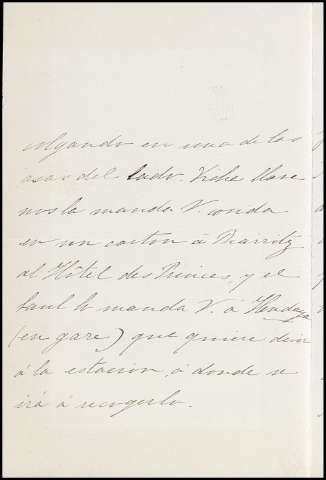 colgando en una de las
asas del lado. Dicha llave
nos la manda V. 
en un carton á Biarritz
al Hôtel des Princes, y el
baul lo manda V. á Hendaya
(en gare) que quiere decir
á la estacion, á donde se
irá á recogerlo.